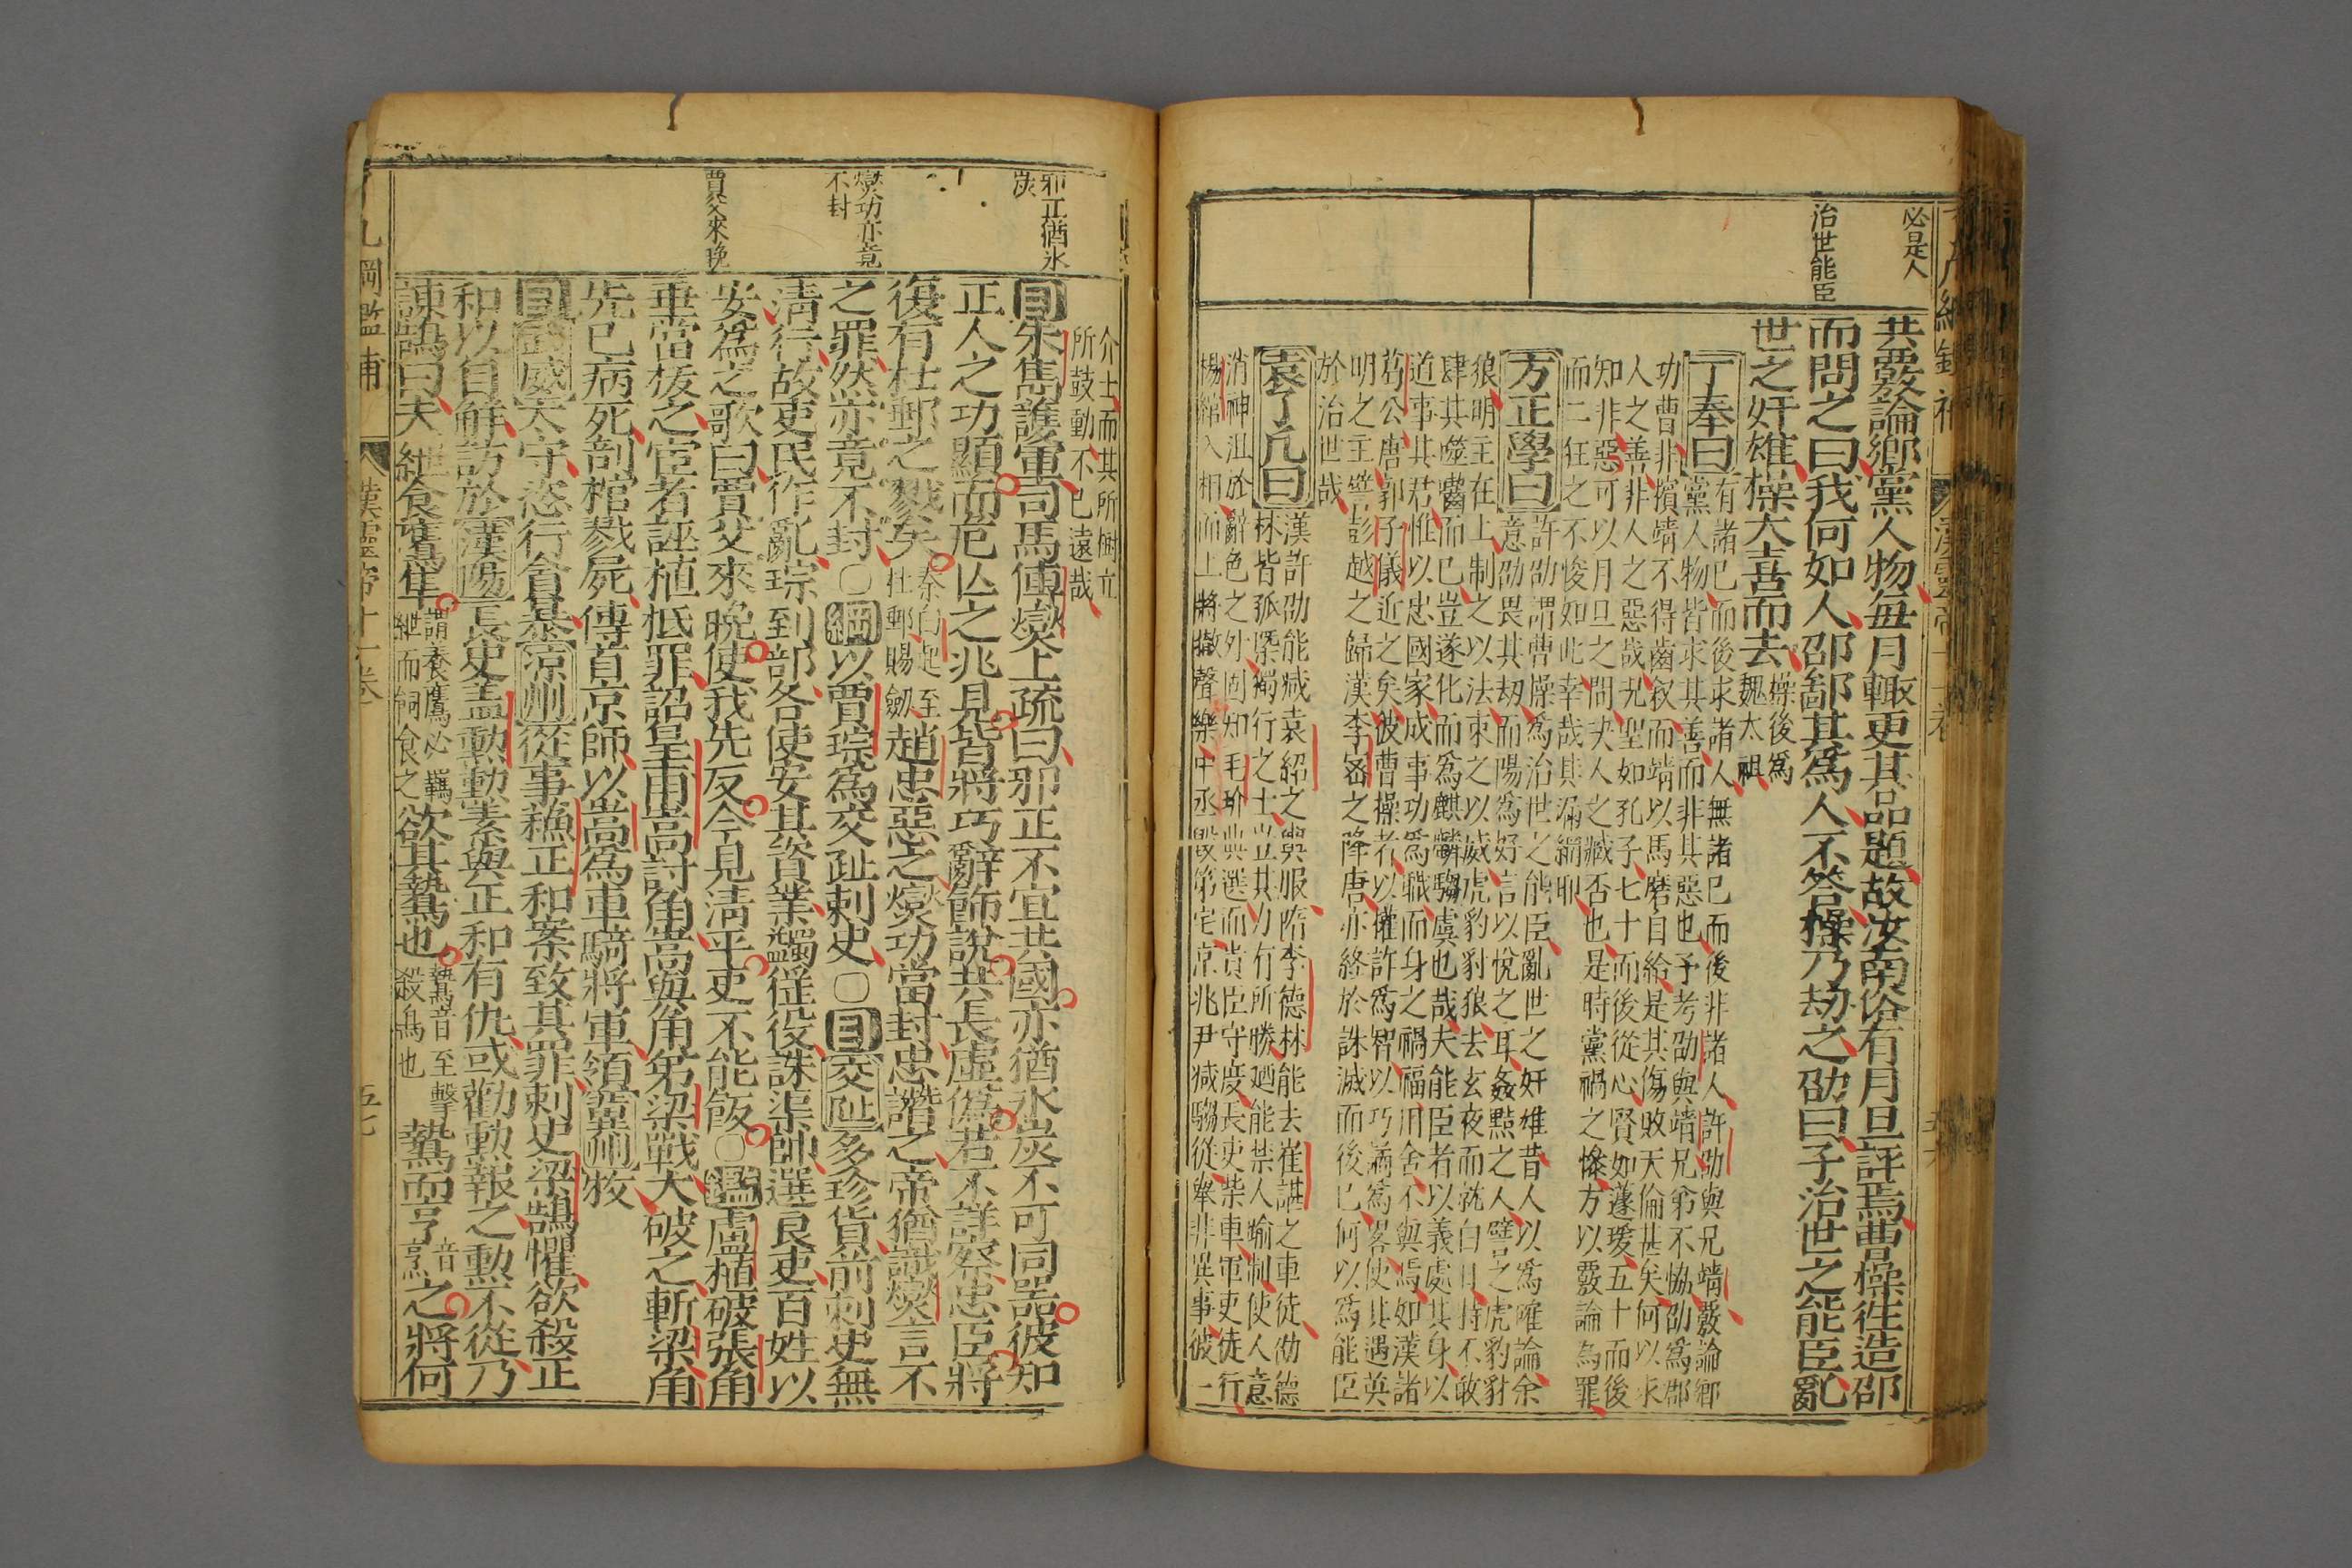 必是人
治世能臣
共覈論鄉黨人物每月輙更其品題故汝南俗有月旦評焉曹操徃造邵
而問之曰我何如人邵鄙其爲人不答操乃劫之劭曰子治世之能臣亂
世之奸雄操大喜而去操後爲魏太祖
丁奉曰有諸已而後求諸人無諸已而後非諸人許劭與兄靖覈論鄉
黨人物皆求其善而非其惡也予考劭與靖兄弟不恊劭爲郡
功曹非擯靖不得齒叙而靖以馬磨自給是其傷敗天倫甚矣何以求
人之善非人之惡哉尤聖如孔子七十而後從心賢如蘧瑗五十而後
知非惡可以月旦之問夬人之臧否也是時黨禍之慘方以覈論為罪
而二狂之不悛如此幸哉其漏網耶
方正學曰許劭謂曹操爲治世之能臣亂世之奸雄昔人以爲確論余
意劭畏其刧而陽爲好言以悅之耳姦黠之人譬之虎豹豺
狼明主在上制之以法束之以威虎豹豺狼去玄夜而就白日持不敢
肆其噬嚙而已豈遂化而爲麒麟騶虞也哉夫能臣者以義處其身以
道事其君惟以忠國家成事功爲職而身之禍福用舍不與焉如漢諸
葛公唐郭子儀近之矣彼曹操者以權詐爲智以巧譎爲畧使其遇英
明之主譬彭越之歸漢李宻之降唐亦終於誅滅而後已何以爲能臣
於治世哉
袁了凡曰漢許劭能臧袁紹之輿服隋李德林能去崔諶之車徒劭德
林皆孤槩獨行之士豈其力有所勝廼能禁人踰制使人意
消神沮於辭色之外固知毛玠典選而貴臣守度長吏柴車軍吏徒行
楊綰入相而上將撤聲樂中丞毀第宅京兆尹減騶從舉非異事彼一
邪正猶氷炭
燮功亦竟不封
賈父來晚
介士而其所樹立
所鼓動不已遠哉
目朱雋護軍司馬傅燮上疏曰邪正不宜共國亦猶氷炭不可同器彼知
正人之功顯而危亾之兆見皆將巧辭飾說共長虛僞若不詳察忠臣將
復有杜郵之戮矣秦白起至杜郵賜劒趙忠惡之燮功當封忠譖之帝猶識燮言不
之罪然亦竟不封○綱以賈琮爲交趾刺史○目交阯多珍貨前刺史無
清行故吏民作亂琮到部各使安其資業蠲徭役誅渠帥選良吏百姓以
安爲之歌曰賈父來晚使我先反今見清平吏不能飯○鑑盧植破張角
垂當拔之宦者誣植抵罪詔皇甫嵩討角嵩與角弟梁戰大破之斬梁角
先已病死剖棺戮屍傳首京師以嵩爲車騎將軍領冀州牧
目武威太守恣行貪暴涼州從事蘓正和案致其罪刺史梁鵠懼欲殺正
和以自觧訪於漢陽長史盖勳勳素與正和有仇或勸勳報之勳不從乃
諫鵠曰夫紲食鷹隼謂養鷹必羈紲而飼食之欲其鷙也鷙音至擊殺鳥也鷙而亨音烹之將何
了凡綱鑑補 漢靈帝十一卷 五七